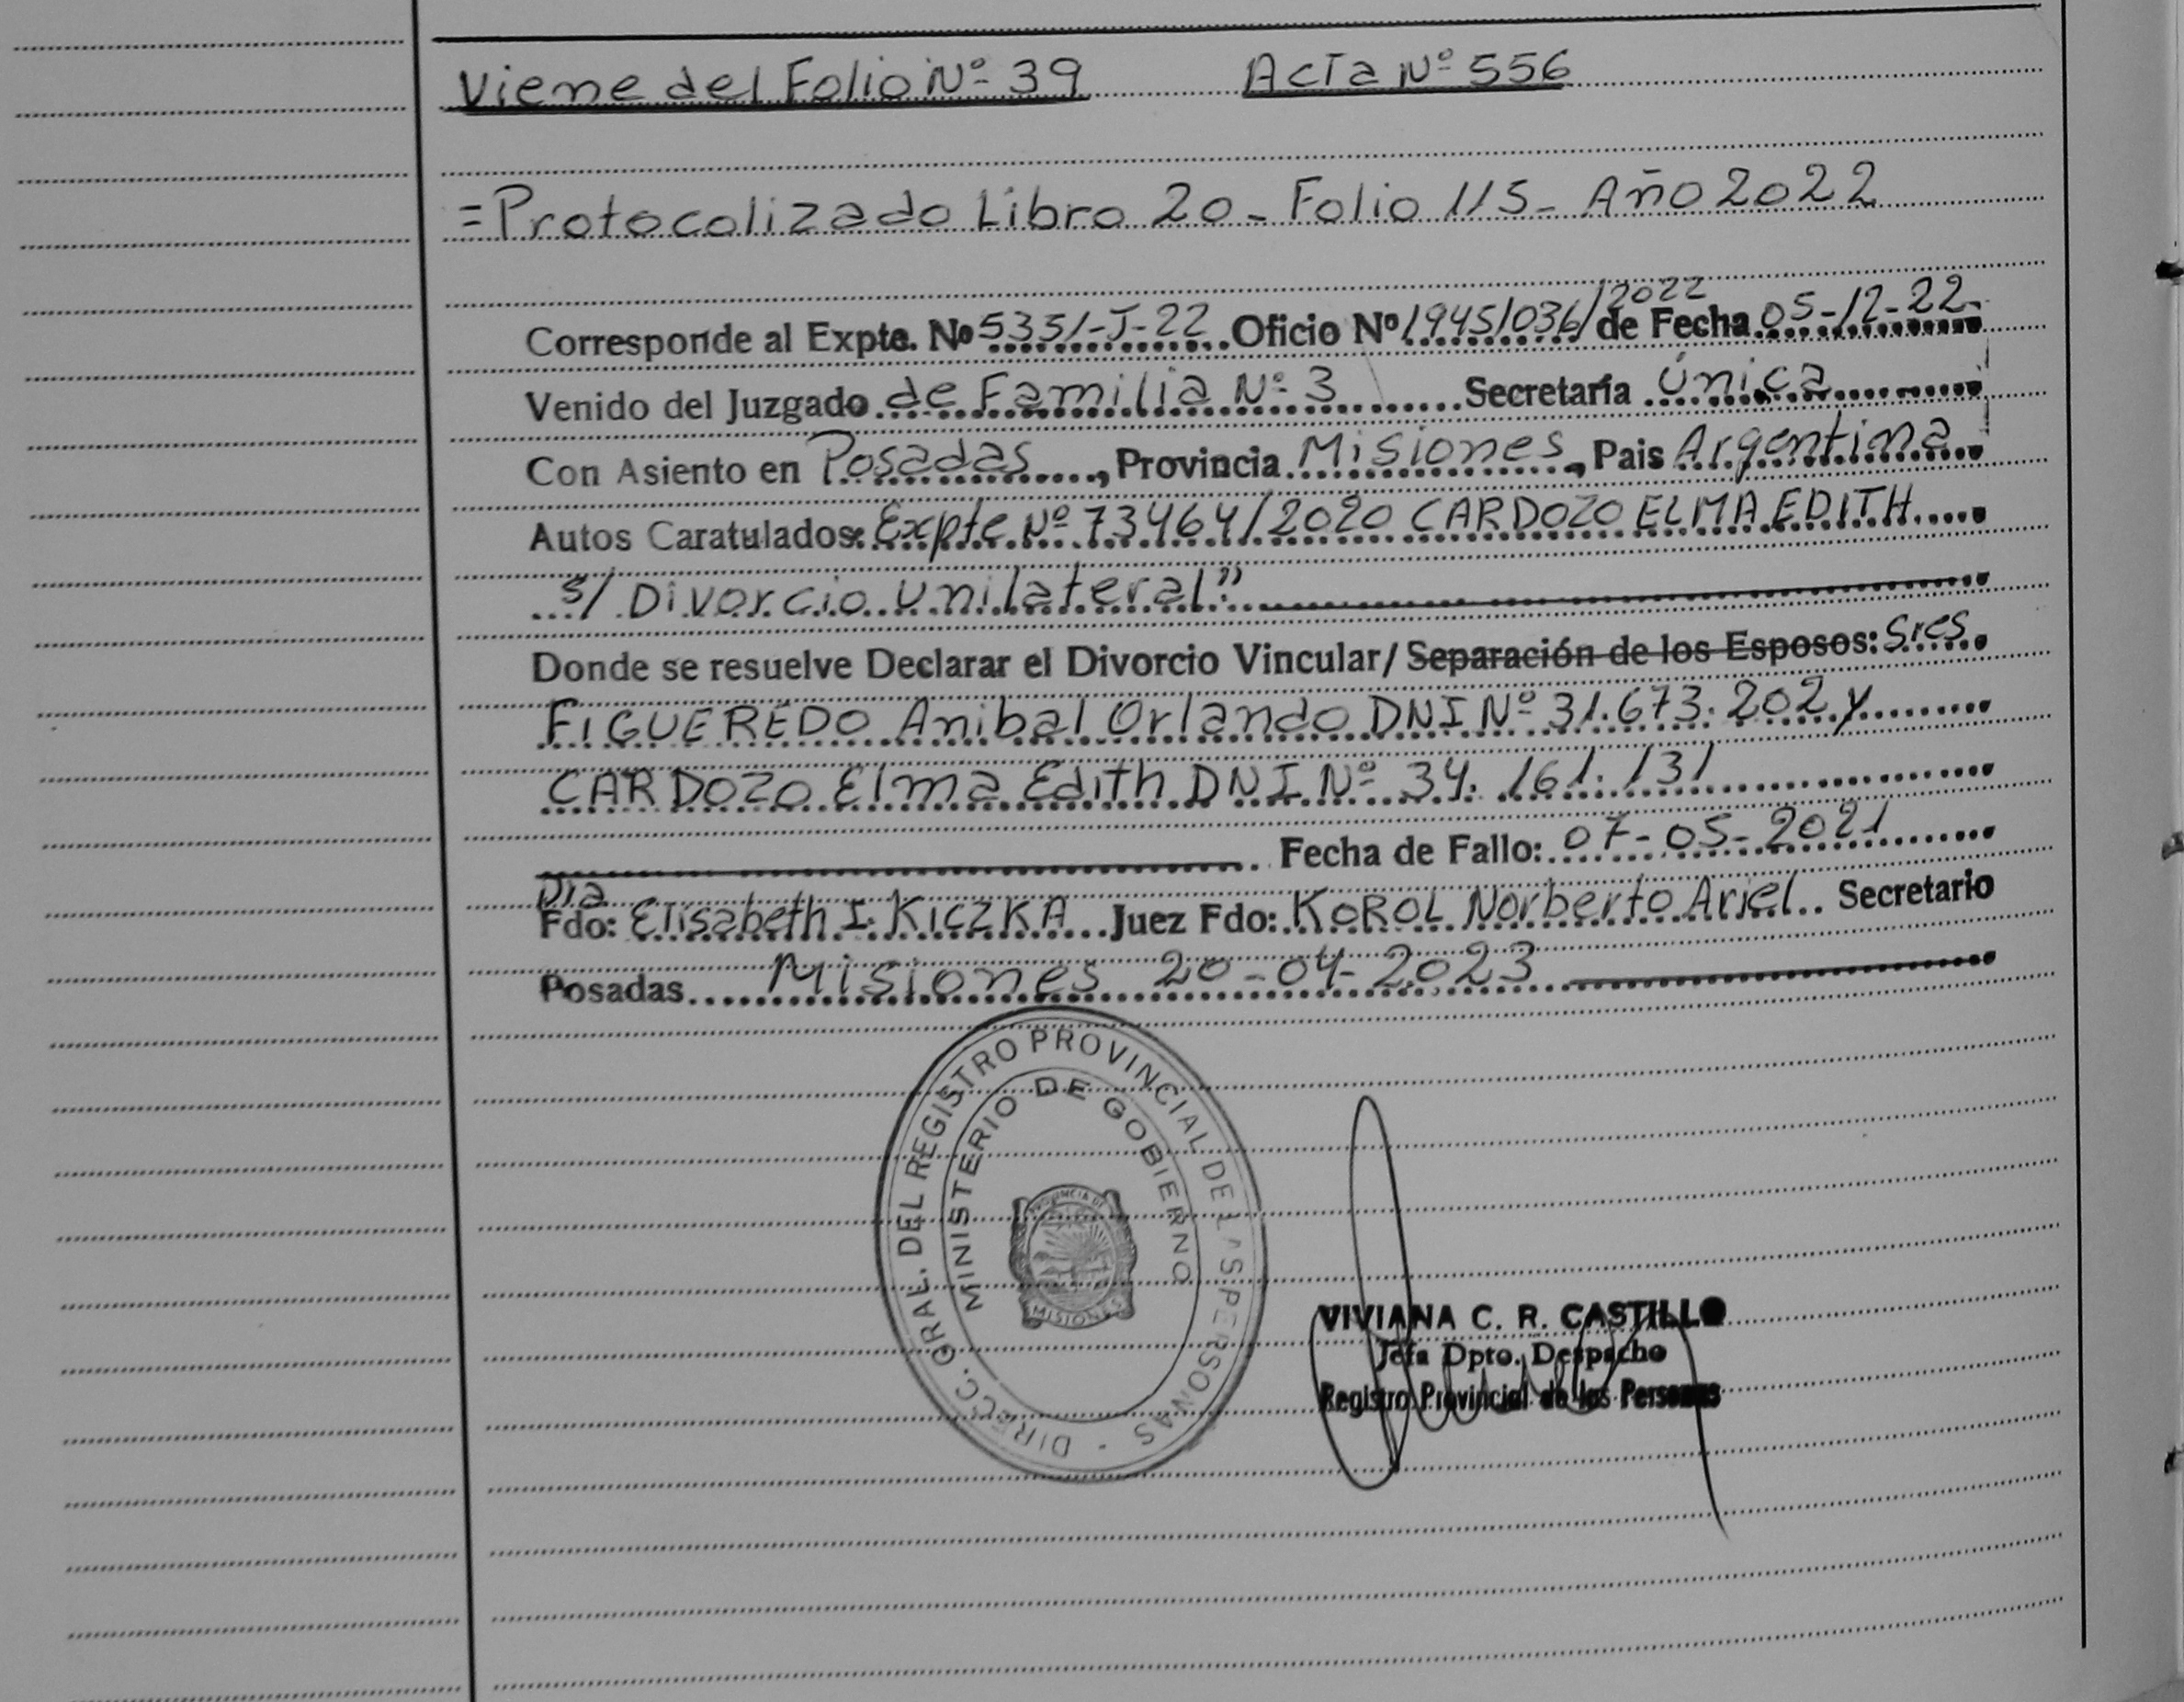 Viene del Folio Nº 39 Acta Nº 556
=Protocolizado Libro 20_ Folio 115_ Año 2022
Corresponde al Expte. Nº 5351-J-22 Oficio Nº 1945/036/2022 de Fecha 05-12-22
Venido del Juzgado de Familia Nº 3 Secretaría Única
Con Asiento en Posadas, Provincia Misiones, Pais Argentina
Autos Caratulados: Expte Nº 73464/2020 CARDOZO ELMA EDITH
s/ Divorcio Unilateral"
Donde se resuelve Declarar el Divorcio Vincular/ Separación de los Esposos: Sres
FIGUEREDO Anibal Orlando DNI Nº 31.673.202 y
CARDOZO Elma Edith DNI Nº 34.161.131
Fecha de Fallo: 07-05-2021
Dra
Fdo: Elisabeth I. KICZKA Juez Fdo: KOROL Norberto Ariel Secretario
Posadas Misiones 20-04-2023
DIRECC. GRAL. DEL REGISTRO PROVINCIAL DE LAS PERSONAS -
MINISTERIO DE GOBIERNO
PROVINCIA DE
MISIONES
VIVIANA C. R. CASTILLO
Jefa Dpto. Despacho
Registro Provincial de las Personas